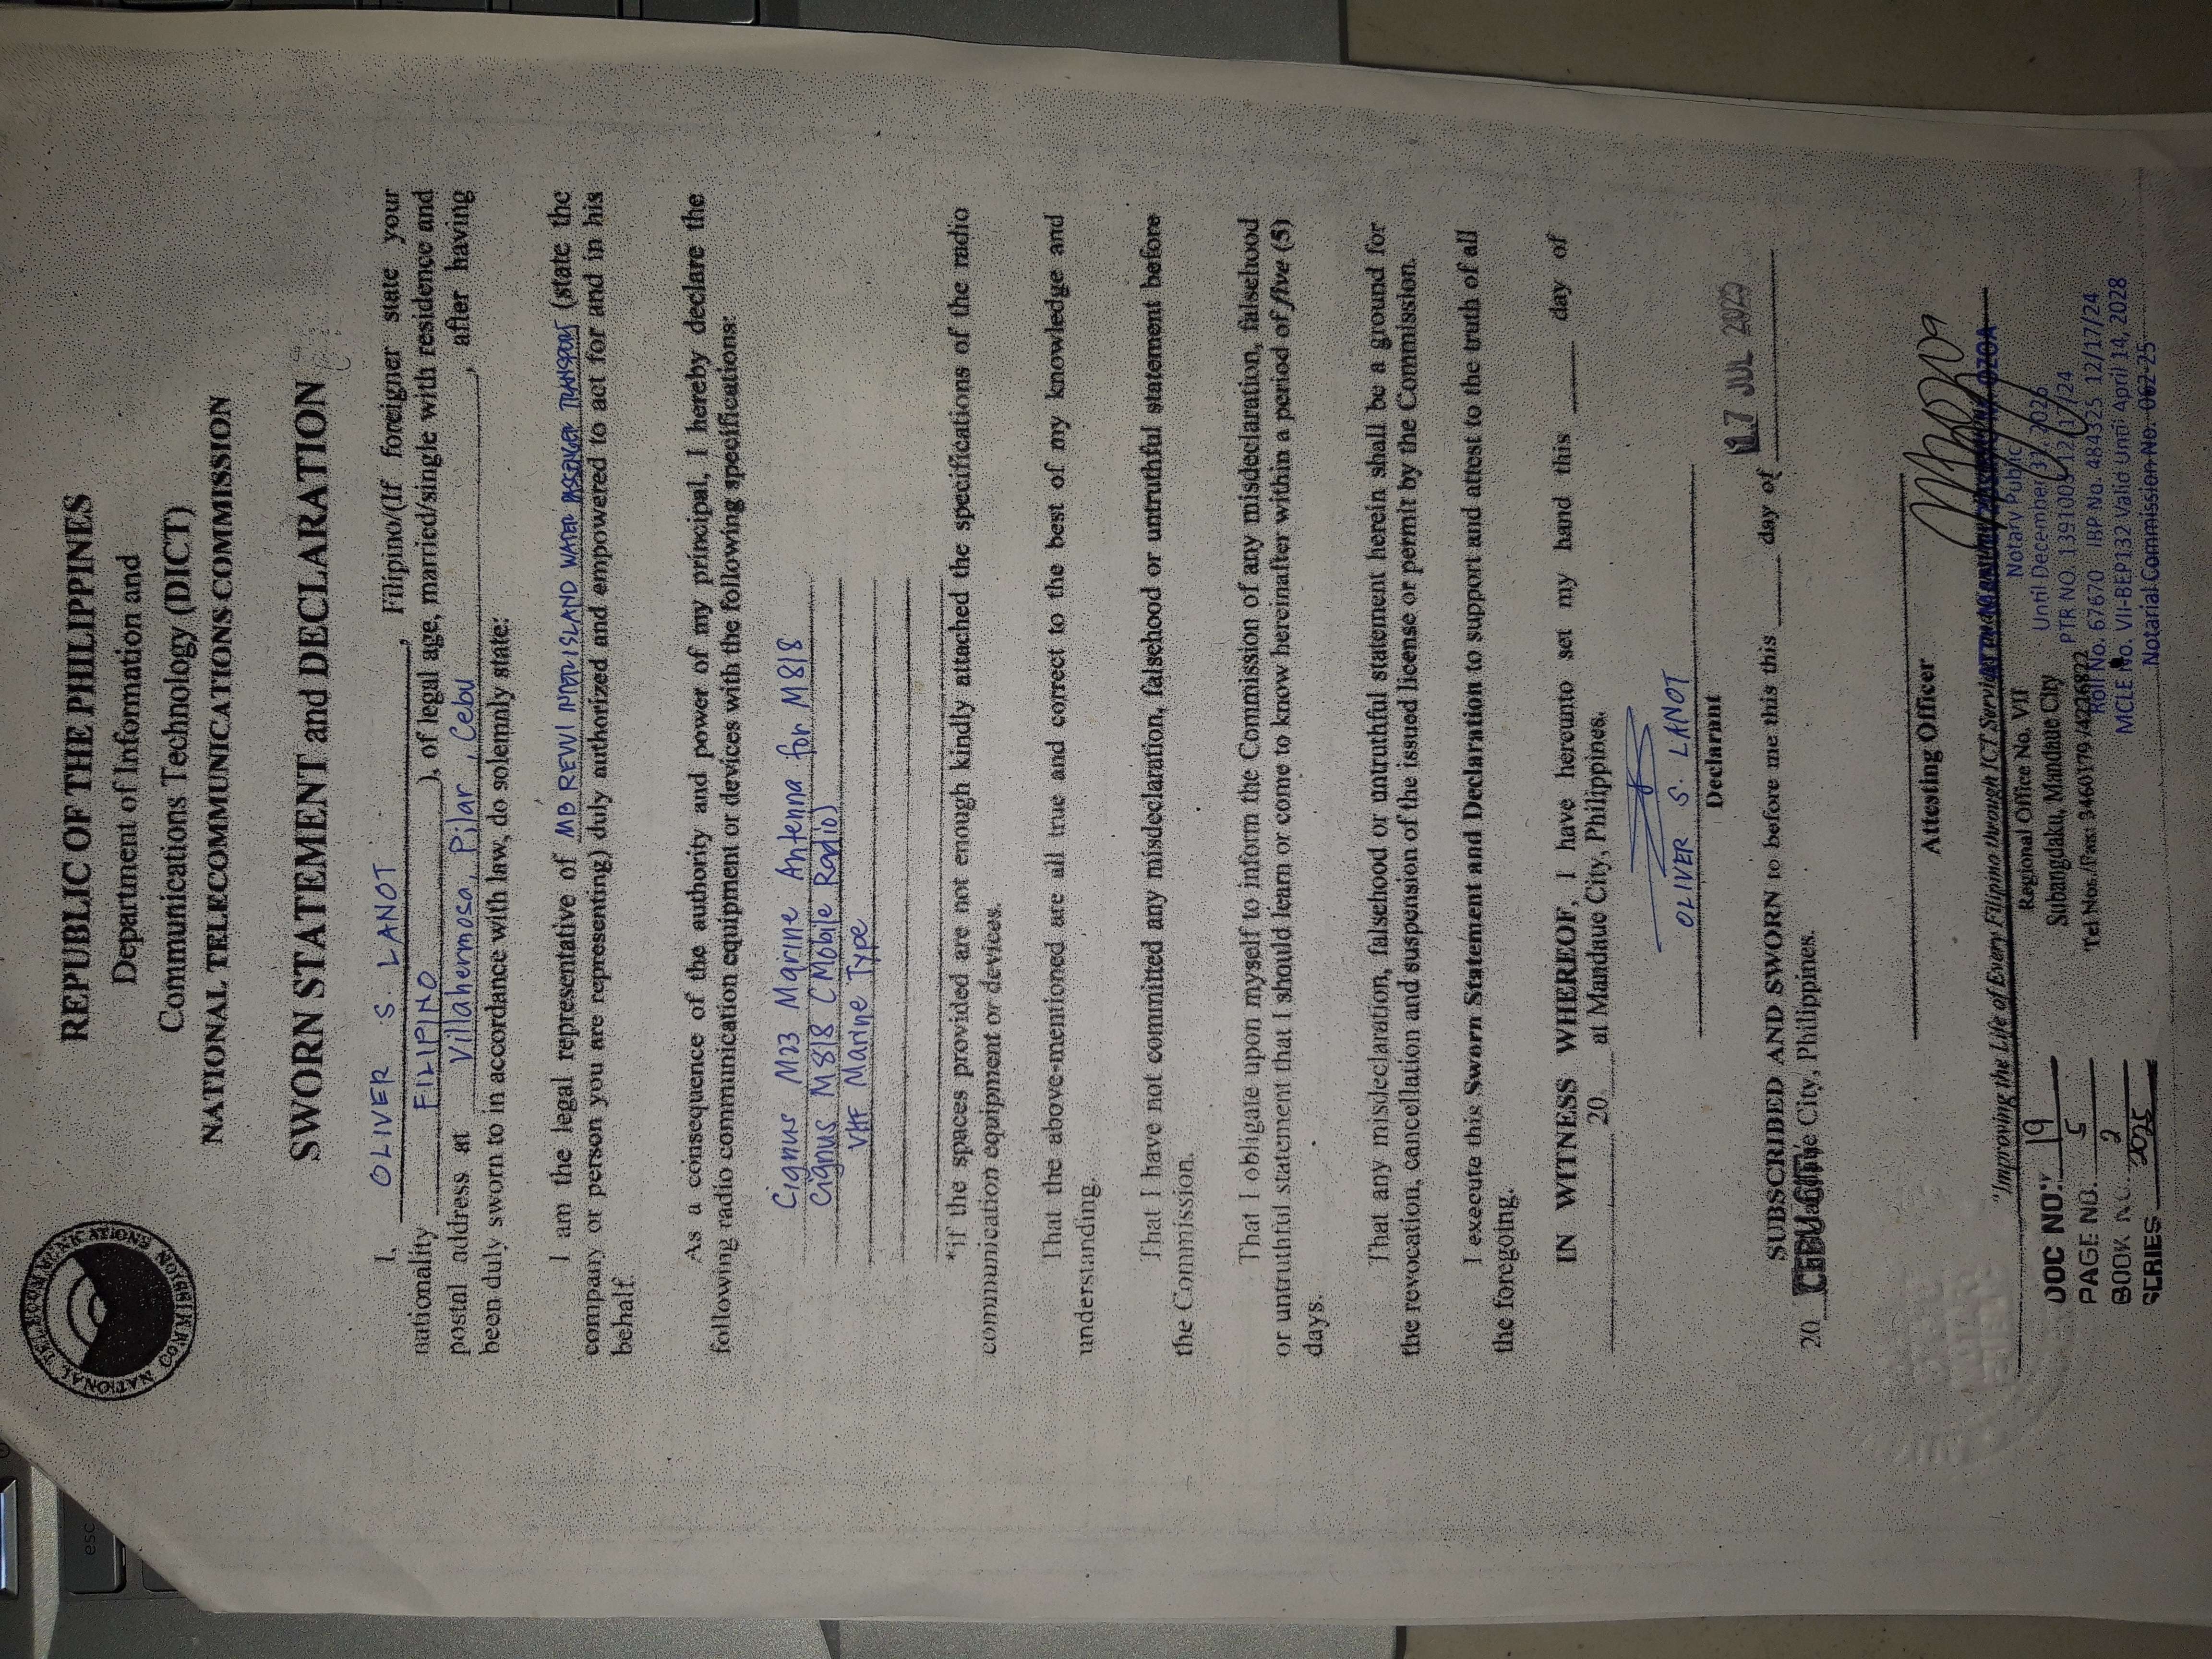 NATIONAL TELECOMMUNICATIONS COMMISSION
REPUBLIC OF THE PHILIPPINES
Department of Information and
Communications Technology (DICT)
NATIONAL TELECOMMUNICATIONS COMMISSION
SWORN STATEMENT and DECLARATION
I, OLIVER S. LANOT, Filipino/(If foreigner state your
nationality FILIPINO), of legal age, married/single with residence and
postal address at Villahermosa, Pilar, Cebu, after having
been duly sworn to in accordance with law, do solemnly state:
I am the legal representative of MB REWI INTER ISLAND WATER PASSENGER TRANSPORT (state the
company or person you are representing) duly authorized and empowered to act for and in his
behalf.
As a consequence of the authority and power of my principal, I hereby declare the
following radio communication equipment or devices with the following specifications:
Cignus M23 Marine Antenna for M818
Cignus M818 (Mobile Radio)
VHF Marine Type
*if the spaces provided are not enough kindly attached the specifications of the radio
communication equipment or devices.
That the above-mentioned are all true and correct to the best of my knowledge and
understanding.
That I have not committed any misdeclaration, falsehood or untruthful statement before
the Commission.
That I obligate upon myself to inform the Commission of any misdeclaration, falsehood
or untruthful statement that I should learn or come to know hereinafter within a period of five (5)
days.
That any misdeclaration, falsehood or untruthful statement herein shall be a ground for
the revocation, cancellation and suspension of the issued license or permit by the Commission.
I execute this Sworn Statement and Declaration to support and attest to the truth of all
the foregoing.
IN WITNESS WHEREOF, I have hereunto set my hand this ____ day of
____ 20____ at Mandaue City, Philippines.
OLIVER S. LANOT
Declarant
SUBSCRIBED AND SWORN to before me this ____ day of 17 JUL 2025
20 CEBU CITY City, Philippines.
Attesting Officer
"Improving the Life of Every Filipino through ICT
Regional Office No. VII
Subangdaku, Mandaue City
Tel Nos./Fax: 3460179/4226822
Notary Public
Until December 31, 2026
PTR NO. 12/17/24
Roll No. 67670 IBP No. 484325 12/17/24
MCLE No. VII-BEP132 Valid Until April 14, 2028
Notarial Commission No. 062-25
DOC NO. 19
PAGE NO. 5
BOOK NO. 2
SERIES 2025
esc